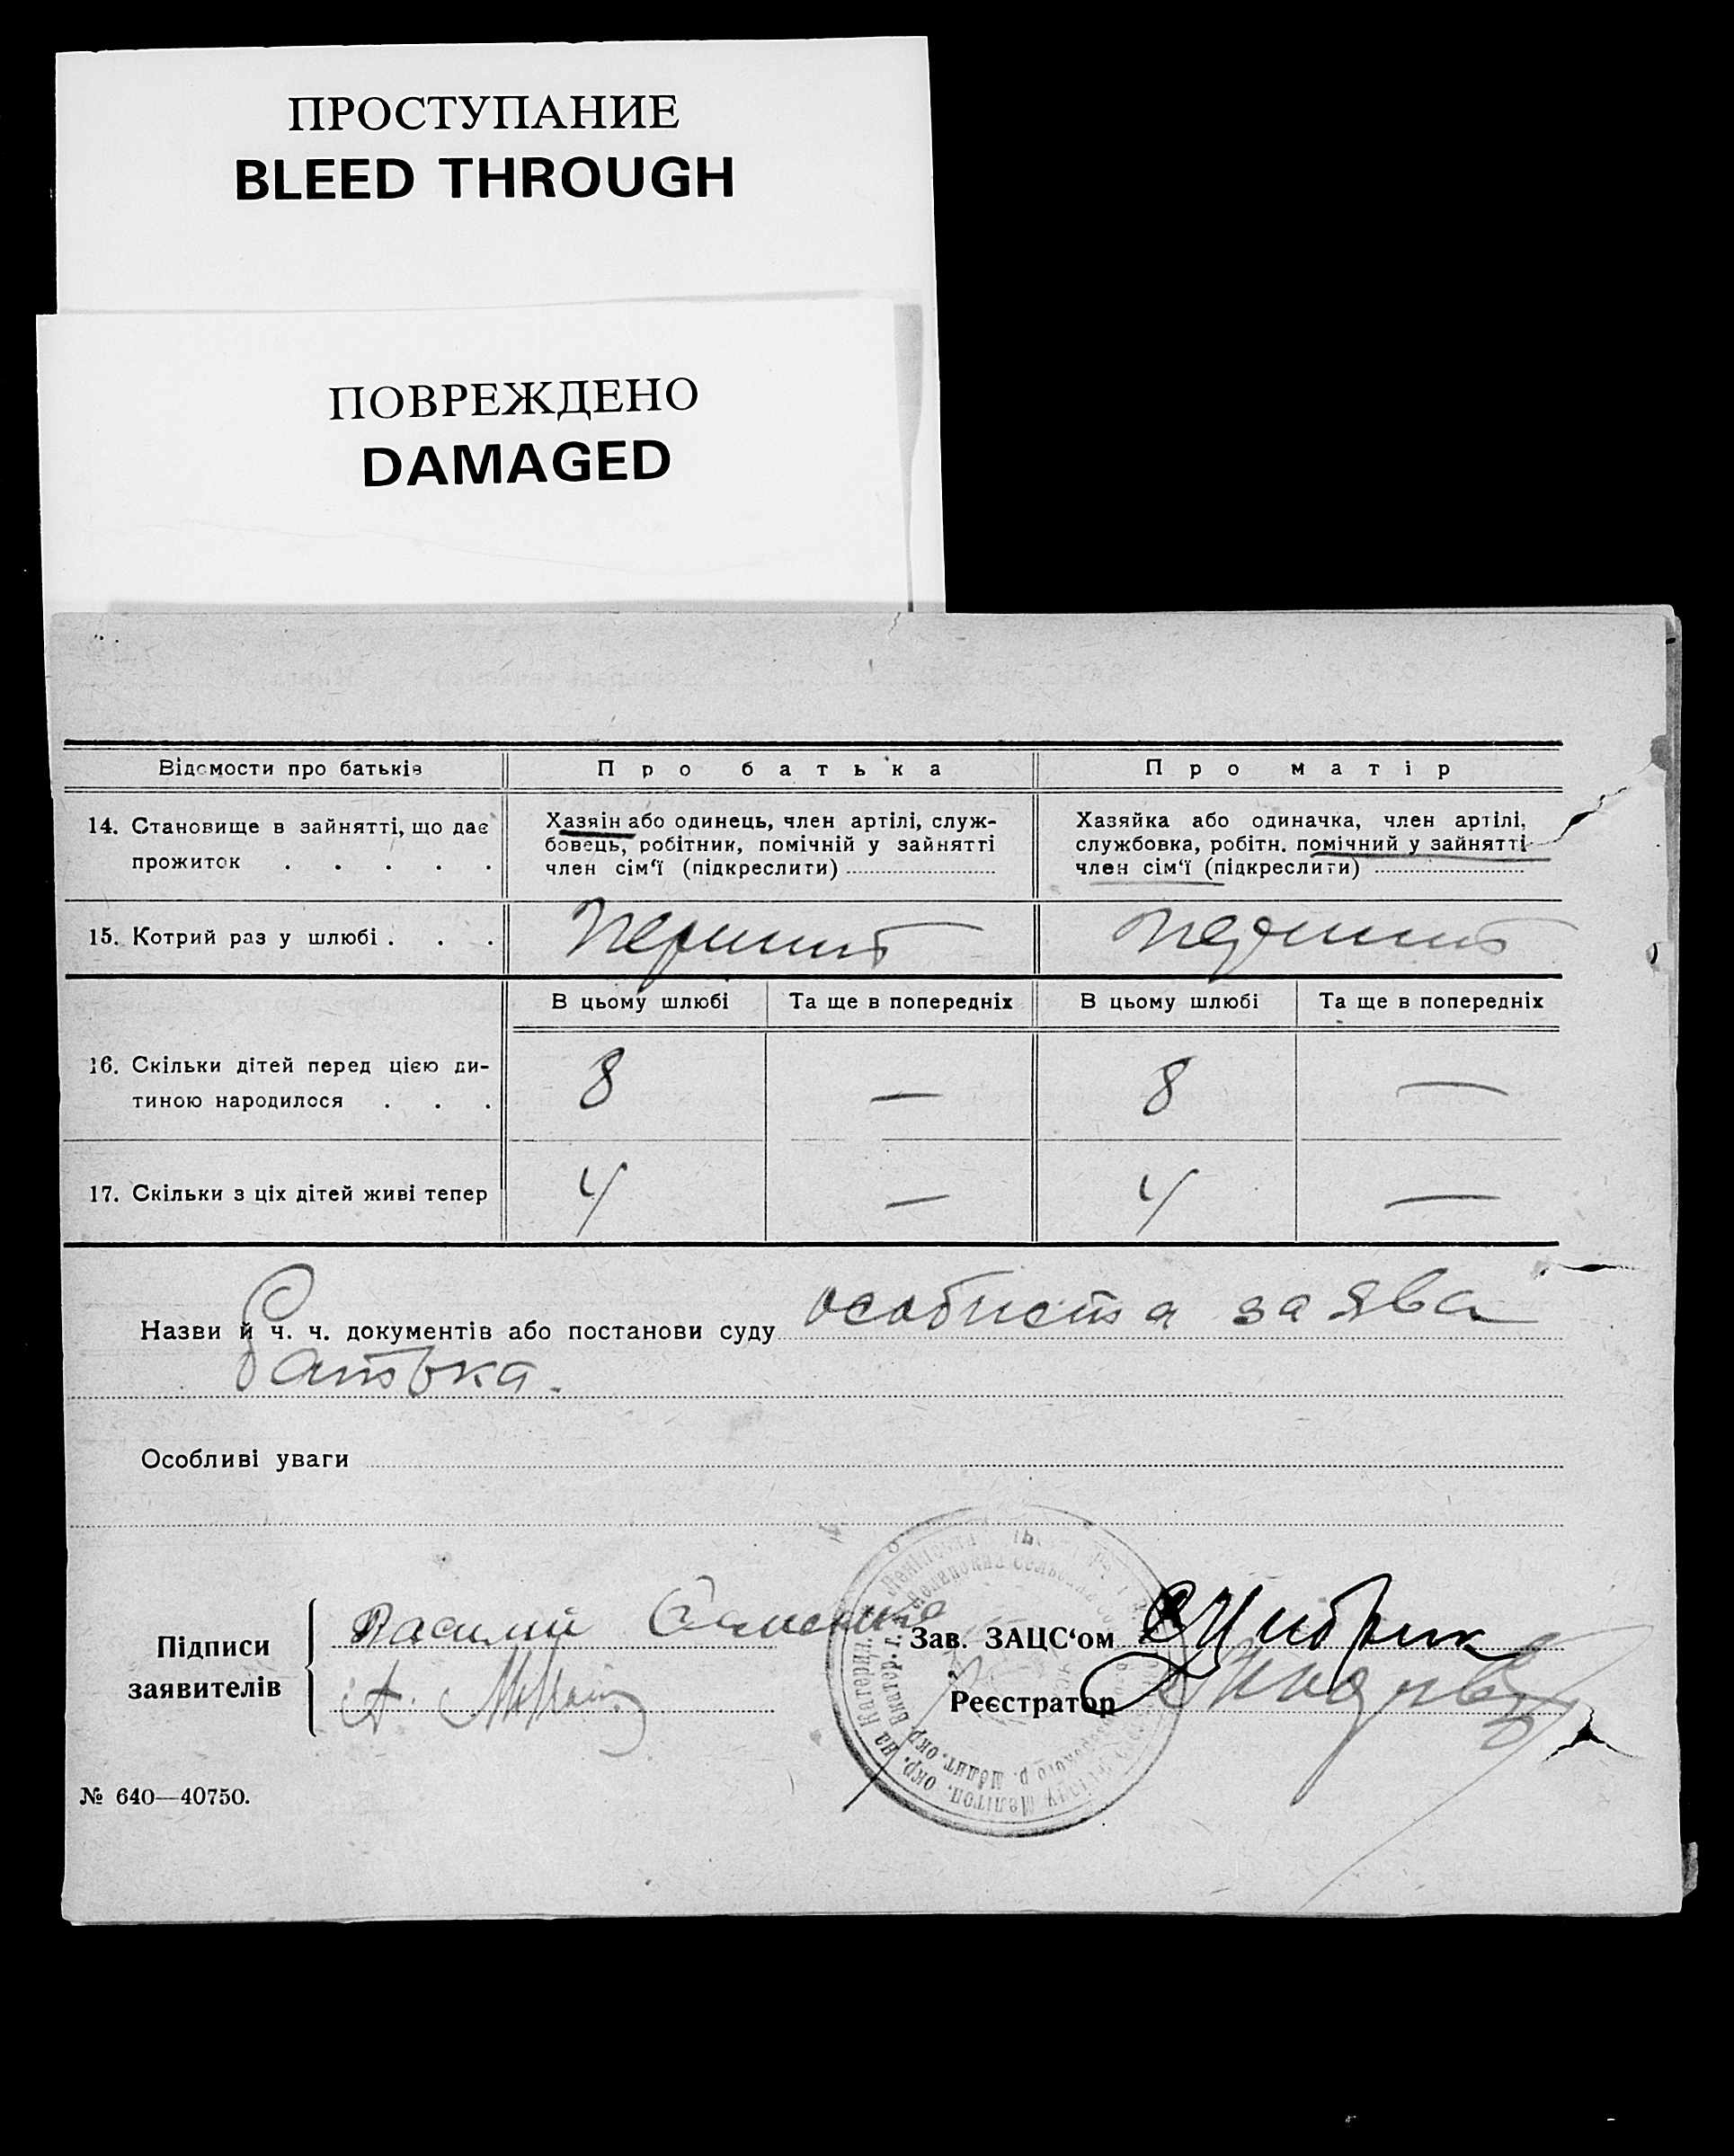 ПРОСТУПАНИЕ
BLEED THROUGH
ПОВРЕЖДЕНО
DAMAGED
Відомости про батьків
Про батька
Про матір
14. Становище в зайнятті, що дає
прожиток . . . . .
Хазяін або одинець, член артілі, служ-
бовець, робітник, помічній у зайнятті
член сім‘ї (підкреслити)
Хазяйка або одиначка, член артілі,
службовка, робітн. помічний у зайнятті
член сім‘ї (підкреслити)
15. Котрий раз у шлюбі . . .
перший
перший
В цьому шлюбі
Та ще в попередніх
В цьому шлюбі
Та ще в попередніх
16. Скільки дітей перед цією ди-
тиною народилося . . .
8
—
8
—
17. Скільки з ціх дітей живі тепер
4
—
4
—
Назви й ч. ч. документів або постанови суду особиста заява
батька.
Особливі уваги
Підписи
заявителів
Василий
А.
Зав. ЗАЦС‘ом
Реєстратор
№ 640—40750.